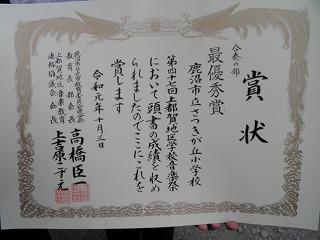 賞状
合奏の部
最優秀賞
鹿沼市立さつきが丘小学校
第四十七回上都賀地区学校音楽祭
において頭書の成績を収め
られましたのでここにこれを
賞します
令和元年十月三日
上都賀地区音楽教育
連絡協議会会長